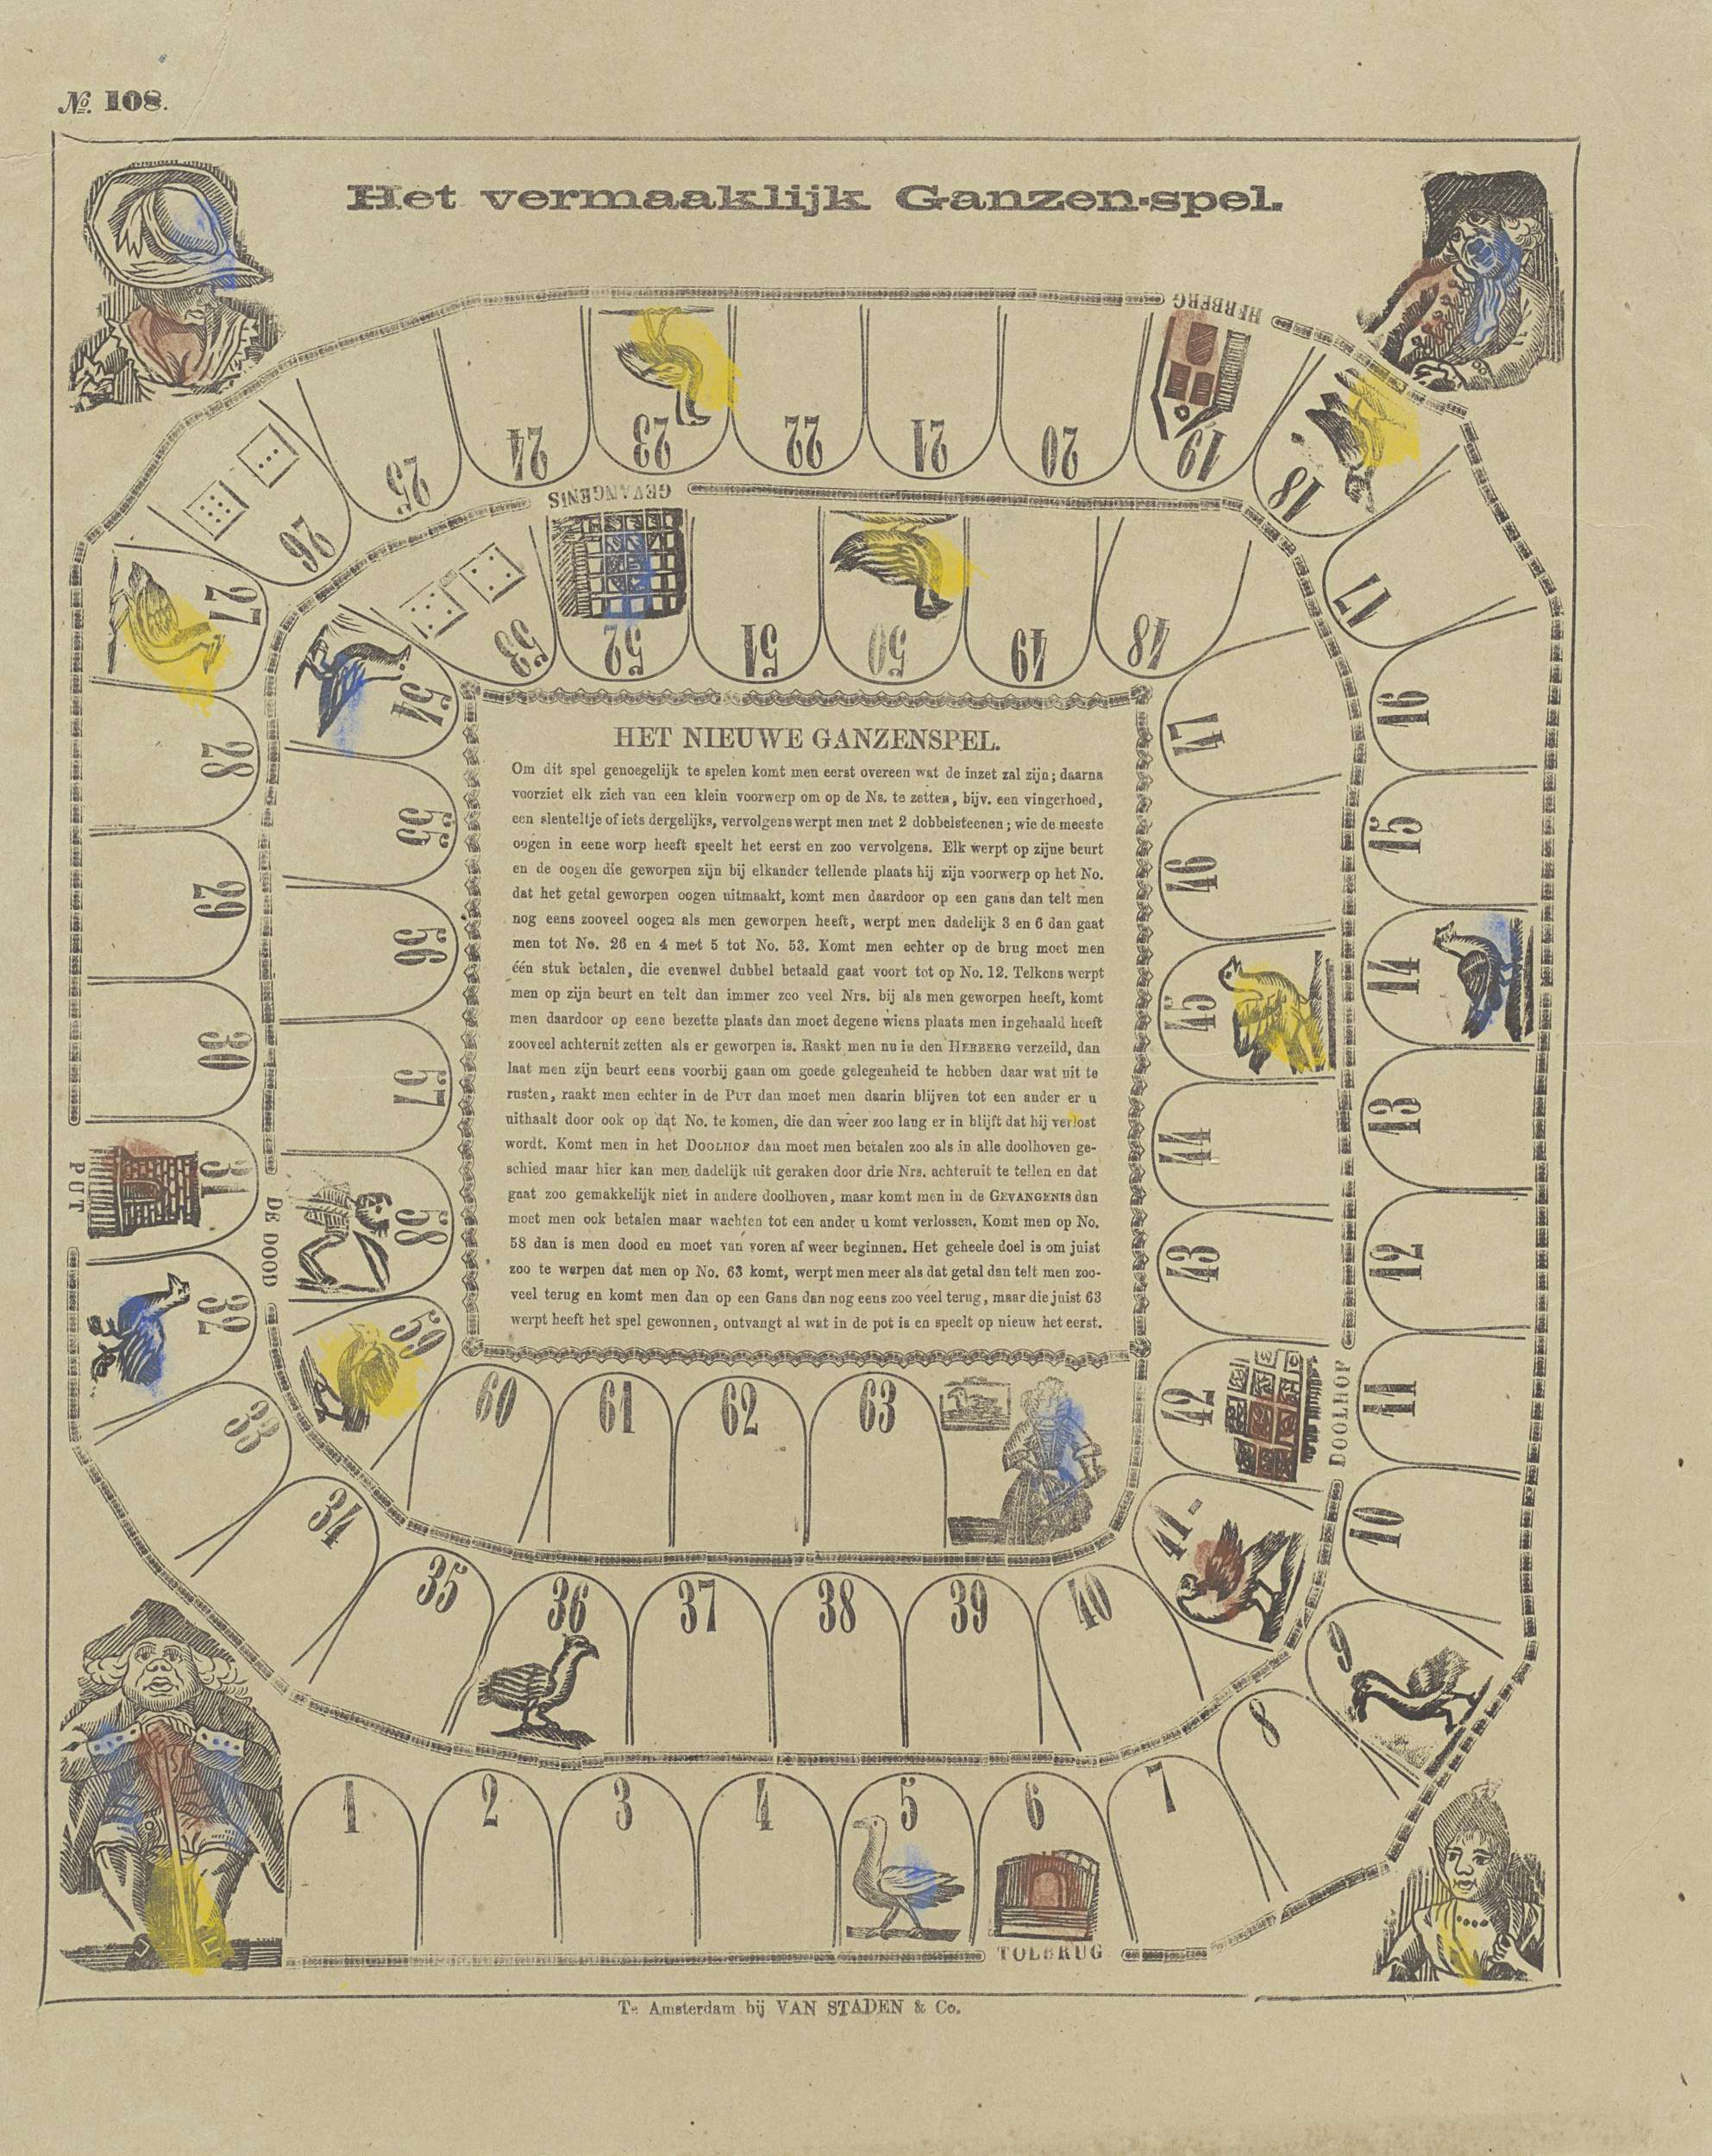 №. 108.
Het vermaaklijk Ganzen-spel.
HERBERG
26
25
24
23
22
21
20
19
18
17
16
15
14
13
12
11
10
9
8
7
6
5
4
3
2
1
TOLBRUG
27
28
29
30
31
PUT
32
33
34
35
36
37
38
39
40
41
42
DOOLHOF
43
44
45
46
47
48
49
50
51
52
GEVANGENIS
53
54
55
56
57
58
DE DOOD
59
60
61
62
63
HET NIEUWE GANZENSPEL.
Om dit spel genoegelijk te spelen komt men eerst overeen wat de inzet zal zijn; daarna
voorziet elk zich van een klein voorwerp om op de Ns. te zetten, bijv. een vingerhoed,
een slenteltje of iets dergelijks, vervolgens werpt men met 2 dobbelsteenen; wie de meeste
oogen in eene worp heeft speelt het eerst en zoo vervolgens. Elk werpt op zijne beurt
en de oogen die geworpen zijn bij elkander tellende plaats hij zijn voorwerp op het No.
dat het getal geworpen oogen uitmaakt, komt men daardoor op een gans dan telt men
nog eens zooveel oogen als men geworpen heeft, werpt men dadelijk 3 en 6 dan gaat
men tot No. 26 en 4 met 5 tot No. 53. Komt men echter op de brug moet men
één stuk betalen, die evenwel dubbel betaald gaat voort tot op No. 12. Telkens werpt
men op zijn beurt en telt dan immer zoo veel Nrs. bij als men geworpen heeft, komt
men daardoor op eene bezette plaats dan moet degene wiens plaats men ingehaald heeft
zooveel achteruit zetten als er geworpen is. Raakt men nu in den HERBERG verzeild, dan
laat men zijn beurt eens voorbij gaan om goede gelegenheid te hebben daar wat uit te
rusten, raakt men echter in de PUT dan moet men daarin blijven tot een ander er u
uithaalt door ook op dat No. te komen, die dan weer zoo lang er in blijft dat hij verlost
wordt. Komt men in het DOOLHOF dan moet men betalen zoo als in alle doolhoven ge-
schied maar hier kan men dadelijk uit geraken door drie Nrs. achteruit te tellen en dat
gaat zoo gemakkelijk niet in andere doolhoven, maar komt men in de GEVANGENIS dan
moet men ook betalen maar wachten tot een ander u komt verlossen. Komt men op No.
58 dan is men dood en moet van voren af weer beginnen. Het geheele doel is om juist
zoo te werpen dat men op No. 63 komt, werpt men meer als dat getal dan telt men zoo-
veel terug en komt men dan op een Gans dan nog eens zoo veel terug, maar die juist 63
werpt heeft het spel gewonnen, ontvangt al wat in de pot is en speelt op nieuw het eerst.
Te Amsterdam bij VAN STADEN & Co.